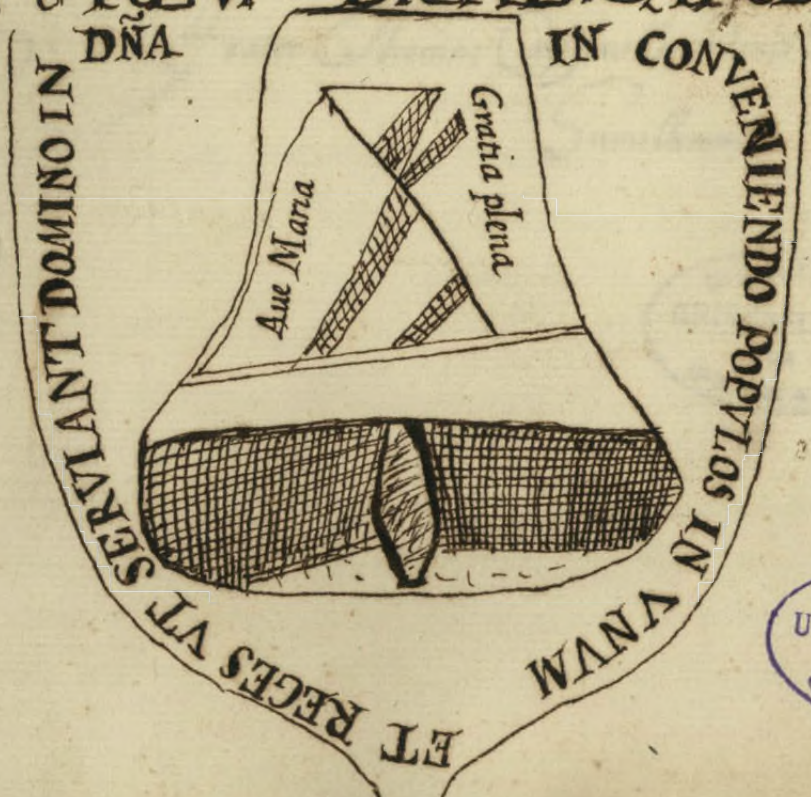 DÑA
IN CONVENIENDO POPVLOS IN VNVM
ET REGES VT SERVIANT DOMINO IN
Aue Maria
Gratia plena